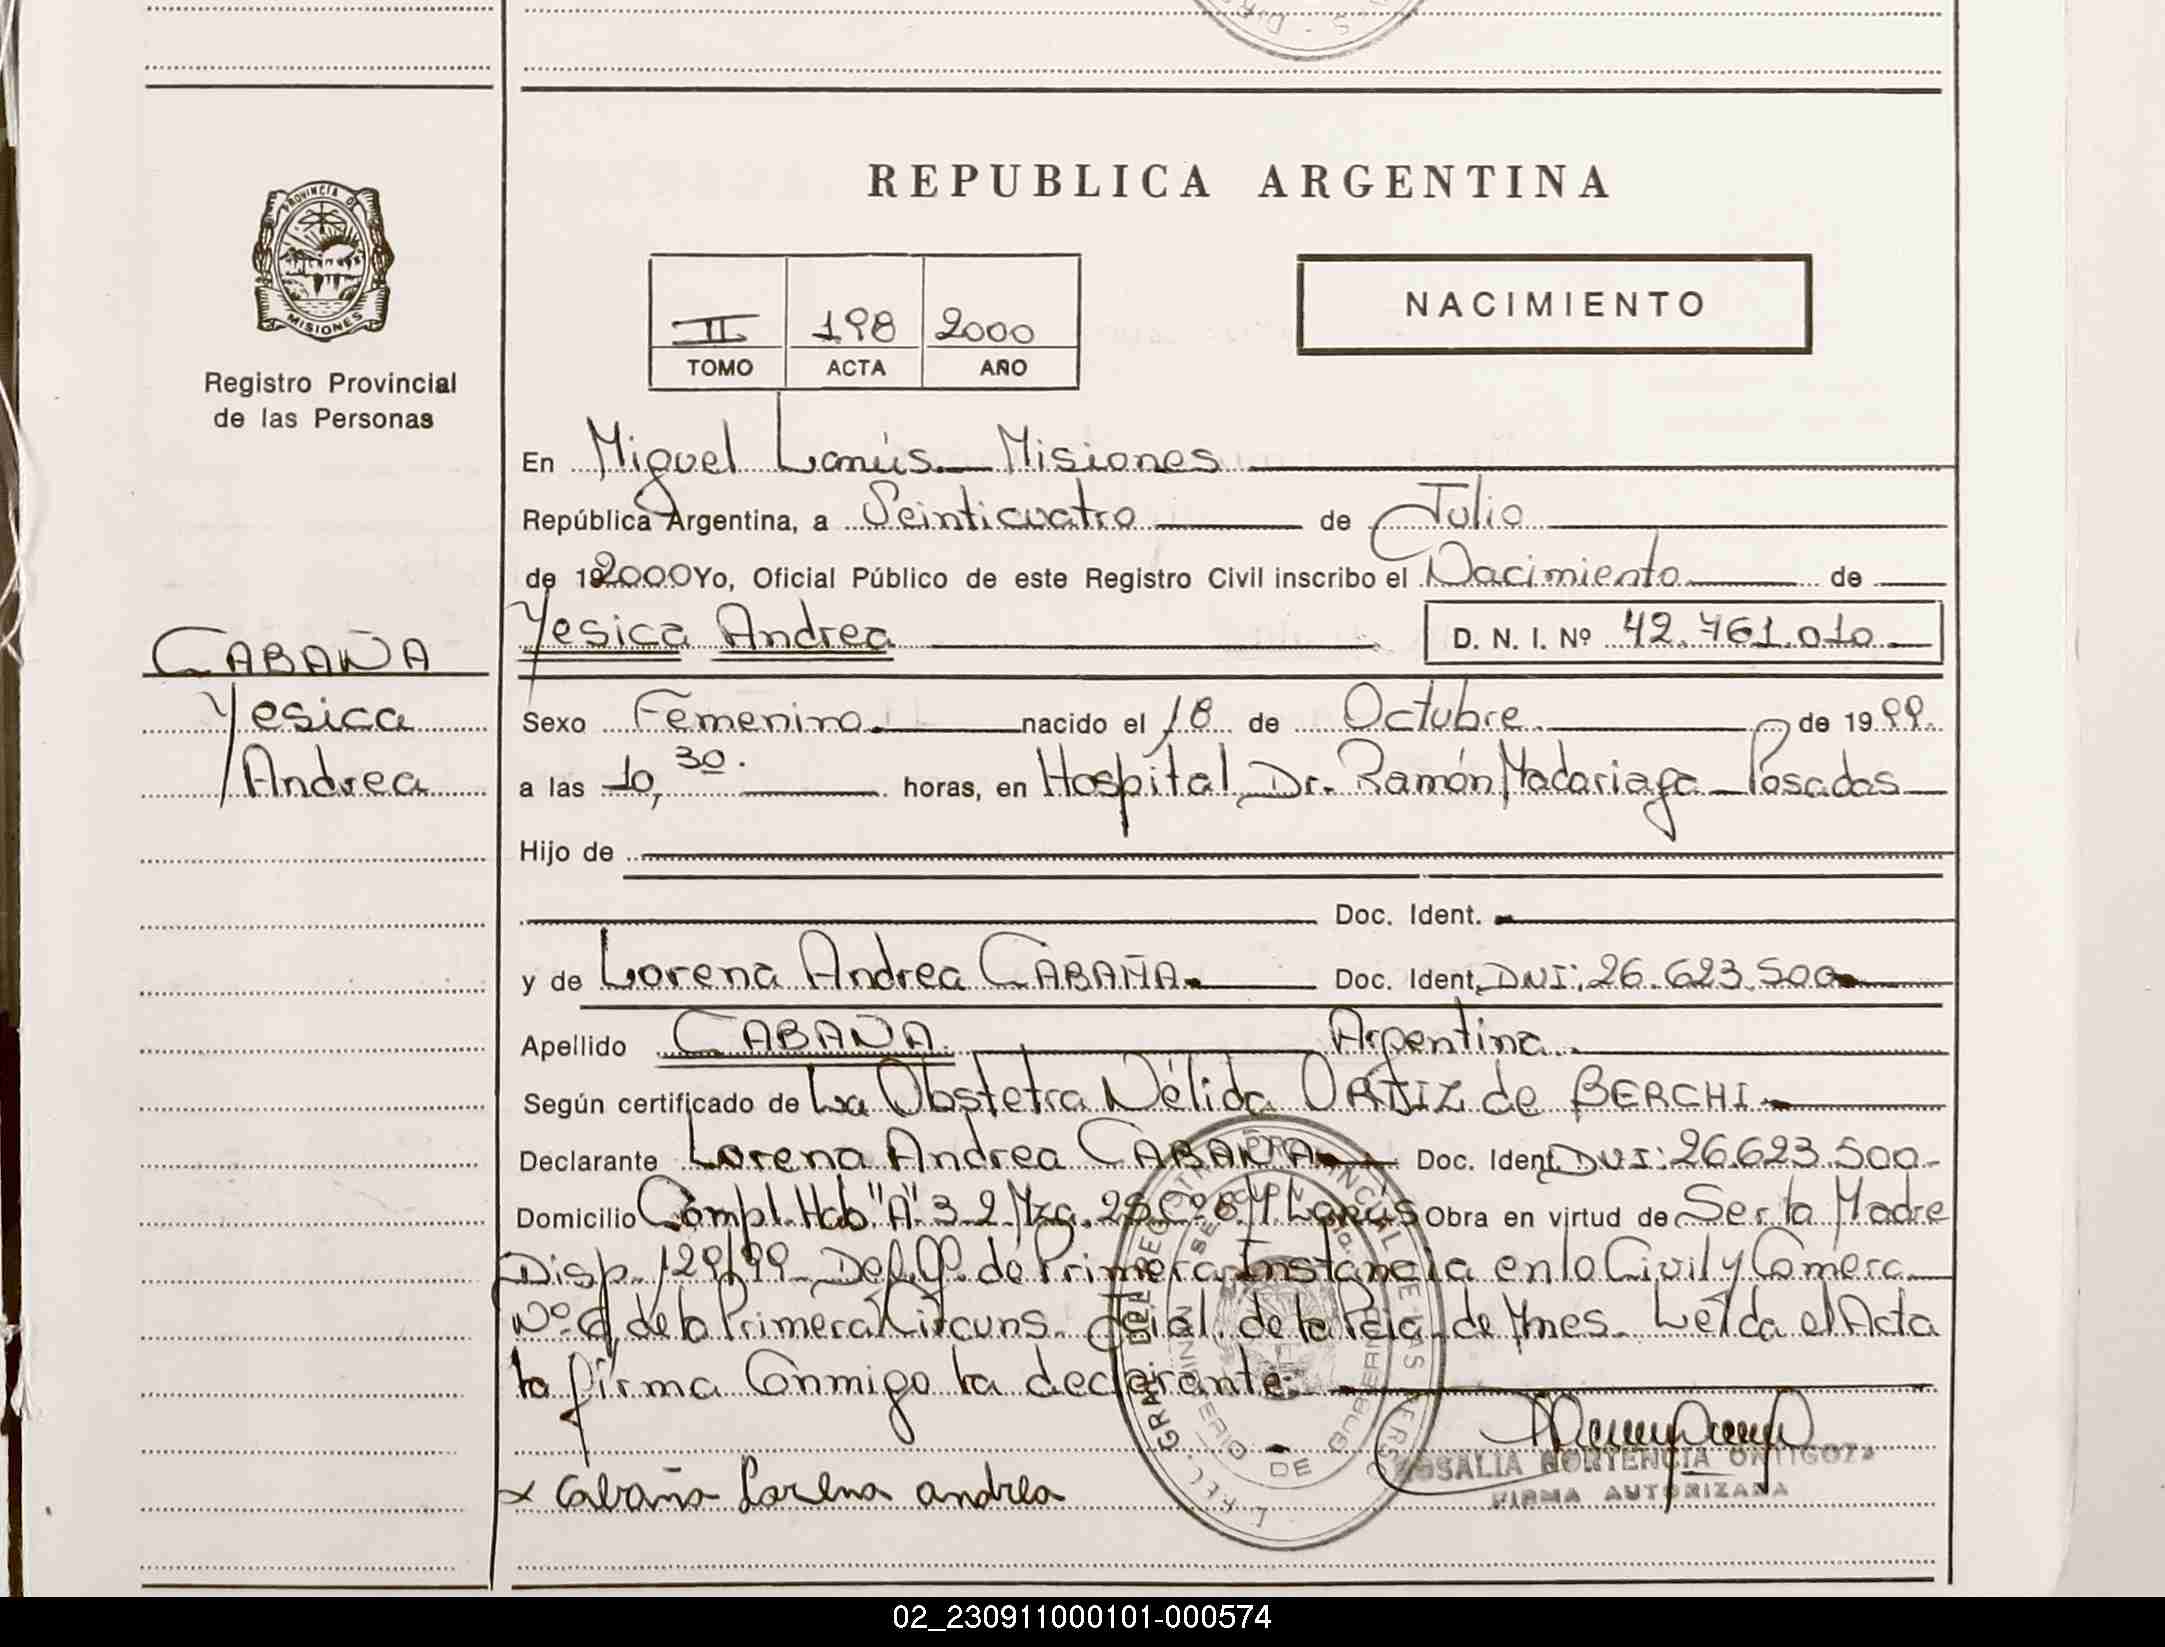 REPUBLICA ARGENTINA
PROVINCIA DE
MISIONES
Registro Provincial
de las Personas
II 198 2000
TOMO ACTA AÑO
NACIMIENTO
En Miguel Lanús - Misiones
República Argentina, a Veinticuatro de Julio
de 192000 Yo, Oficial Público de este Registro Civil inscribo el Nacimiento de
Yesica Andrea D. N. I. Nº 42.761.010
CABAÑA
Yesica
Andrea
Sexo Femenino. nacido el 18 de Octubre. de 1999.
a las 10,30. horas, en Hospital Dr. Ramón Madariaga - Posadas
Hijo de
Doc. Ident.
y de Lorena Andrea CABAÑA. Doc. Ident. DNI: 26.623.500
Apellido CABAÑA. Argentina.
Según certificado de La Obstetra Nélida ORTIZ de BERCHI
Declarante Lorena Andrea CABAÑA Doc. Ident. DNI: 26.623.500-
Domicilio Compl. Hab "A" 3-2 Mza. 25 Cº 8 M Lanús Obra en virtud de Ser la Madre
Disp. 129/99 - Def. Of. de Primera Instancia en lo Civil y Comerc.
Nº 6 de la Primera Circuns. Jcial. de la Pcia. de Mnes. Leída el Acta
la firma Conmigo la declarante.
x Cabaña Lorena andrea
ROSALIA HORTENCIA ORTIGOZA
FIRMA AUTORIZADA
02_230911000101-000574